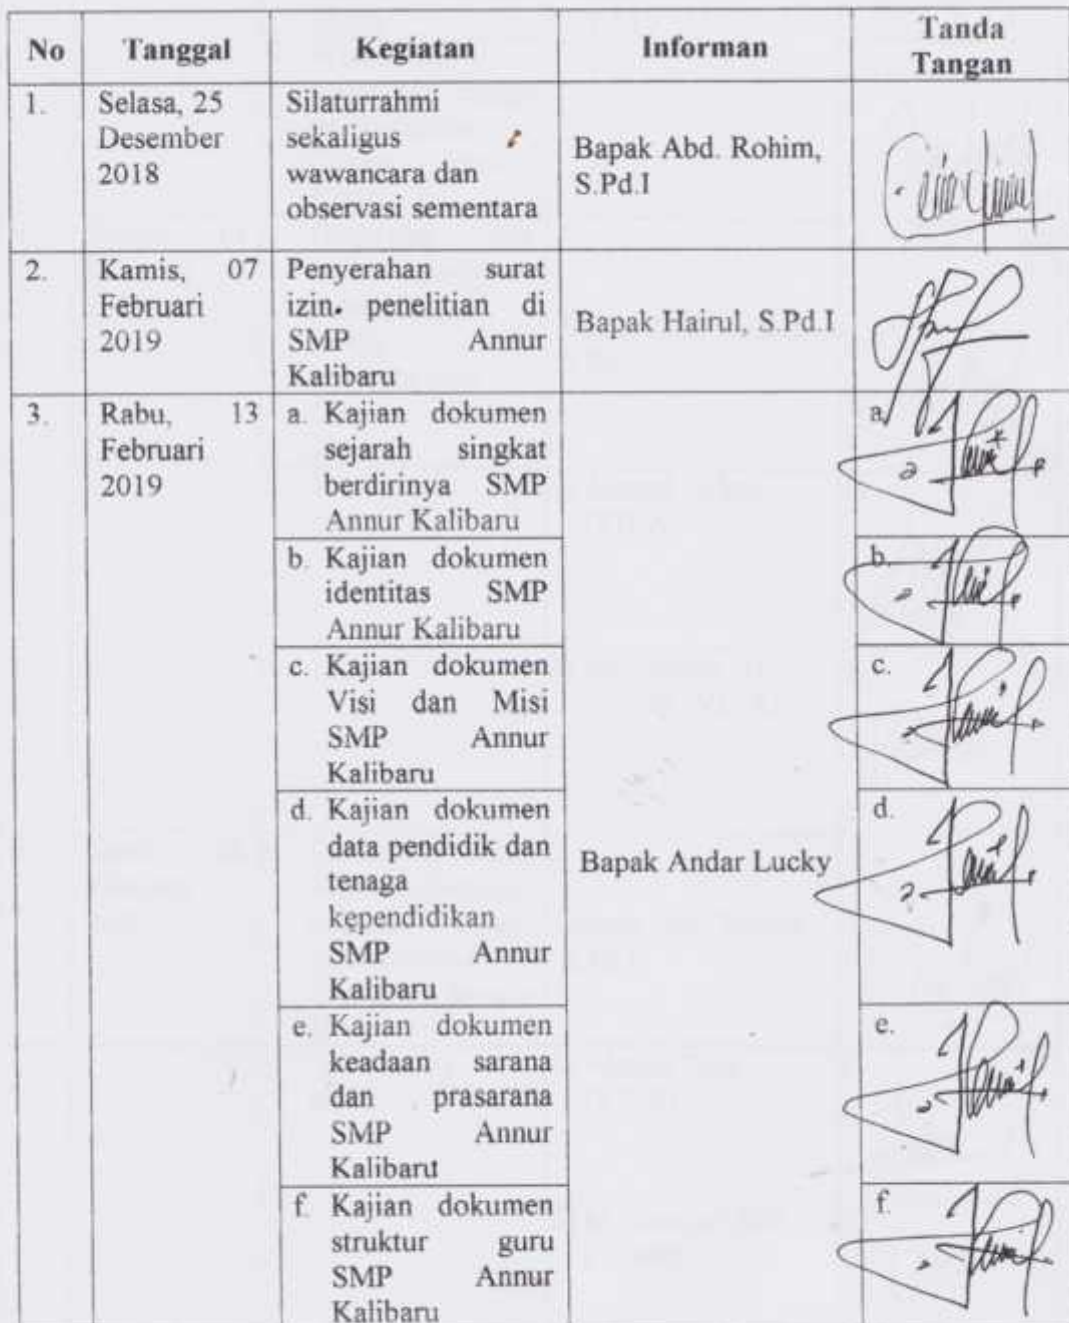 No Tanggal Kegiatan Informan Tanda
Tangan
1. Selasa, 25
Desember
2018
Silaturrahmi
sekaligus
wawancara dan
observasi sementara
Bapak Abd. Rohim,
S.Pd.I
2. Kamis, 07
Februari
2019
Penyerahan surat
izin penelitian di
SMP Annur
Kalibaru
Bapak Hairul, S.Pd.I
3. Rabu, 13
Februari
2019
a. Kajian dokumen
sejarah singkat
berdirinya SMP
Annur Kalibaru
b. Kajian dokumen
identitas SMP
Annur Kalibaru
c. Kajian dokumen
Visi dan Misi
SMP Annur
Kalibaru
d. Kajian dokumen
data pendidik dan
tenaga
kependidikan
SMP Annur
Kalibaru
e. Kajian dokumen
keadaan sarana
dan prasarana
SMP Annur
Kalibaru
f. Kajian dokumen
struktur guru
SMP Annur
Kalibaru
Bapak Andar Lucky
a.
b.
c.
d.
e.
f.